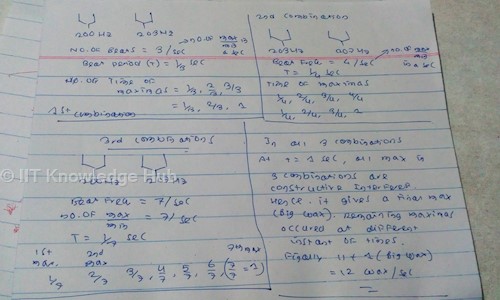 200Hz 203Hz
NO.OF Bears = 3/sec → NO.OF max/min in a sec
Bear Period (T) = 1/3 sec
NO.OF Time OF maximas = 1/3, 2/3, 3/3
= 1/3, 2/3, 1
1st combination
2nd combination
203Hz 207Hz
Bear Freq = 4/sec → NO.OF max/min in a sec
T = 1/4 sec
Time of maximas
1/4, 2/4, 3/4, 4/4
1/4, 2/4, 3/4, 1
3rd combinations
200Hz
Bear Freq = 7/sec
NO.OF max/min = 7/sec
T = 1/7 sec
1st max. 2nd max 7th max
1/7 2/7 3/7, 4/7, 5/7, 6/7 (7/7 = 1)
In all 3 combinations
At t = 1 sec, all max in
3 combinations are
constructive interfered.
Hence. it gives a final max
(Big wax). Remaining maximas
occured at different
instant of times.
Finally 11 + 1 (Big wax)
= 12 wax/sec
IIT Knowledge Hub